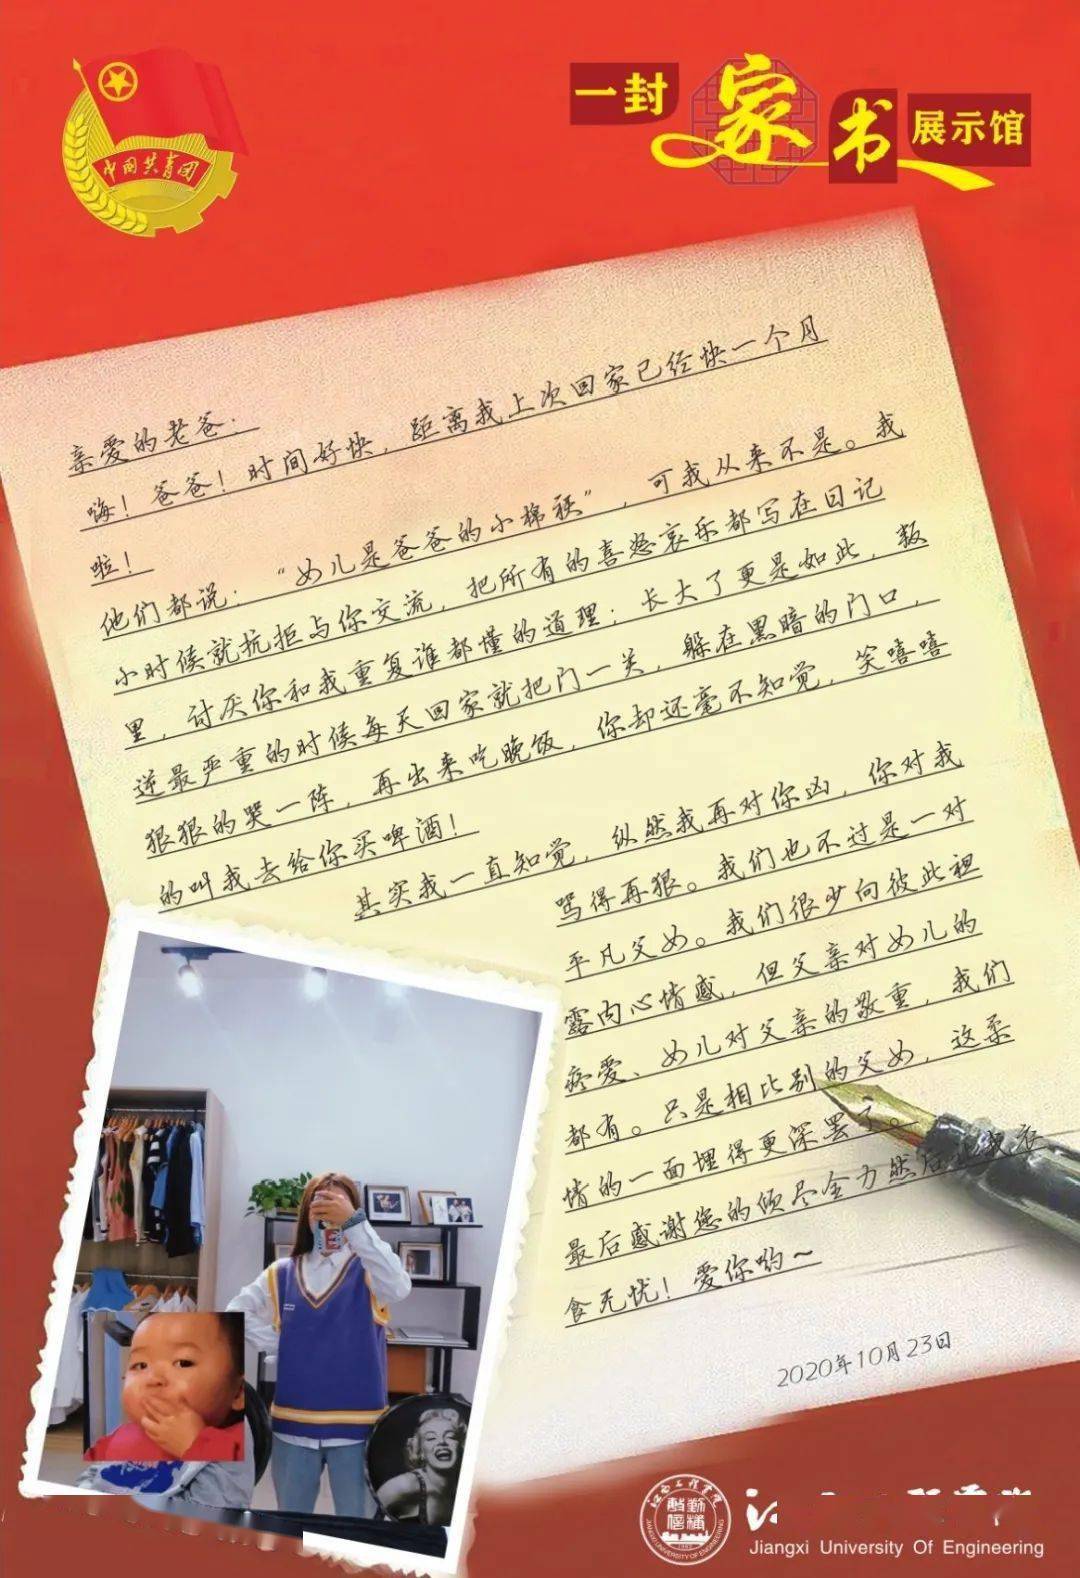 中国共青团
一封家书展示馆
亲爱的老爸：
嗨！爸爸！时间好快，距离我上次回家已经快一个月
啦！
他们都说：“女儿是爸爸的小棉袄”，可我从来不是。我
小时候就抗拒与你交流，把所有的喜怒哀乐都写在日记
里，讨厌你和我重复谁都懂的道理；长大了更是如此，叛
逆最严重的时候每天回家就把门一关，躲在黑暗的门口，
狠狠的哭一阵，再出来吃晚饭，你却还毫不知觉，笑嘻嘻
的叫我去给你买啤酒！
其实我一直知觉，纵然我再对你凶，你对我
骂得再狠。我们也不过是一对
平凡父女。我们很少向彼此袒
露内心情感，但父亲对女儿的
疼爱、女儿对父亲的敬重，我们
都有。只是相比别的父女，这柔
情的一面埋得更深罢了。
最后感谢您的倾尽全力然后让我衣
食无忧！爱你哟～
2020年10月23日
江西工程学院
JIANGXI UNIVERSITY OF ENGINEERING
Jiangxi University Of Engineering